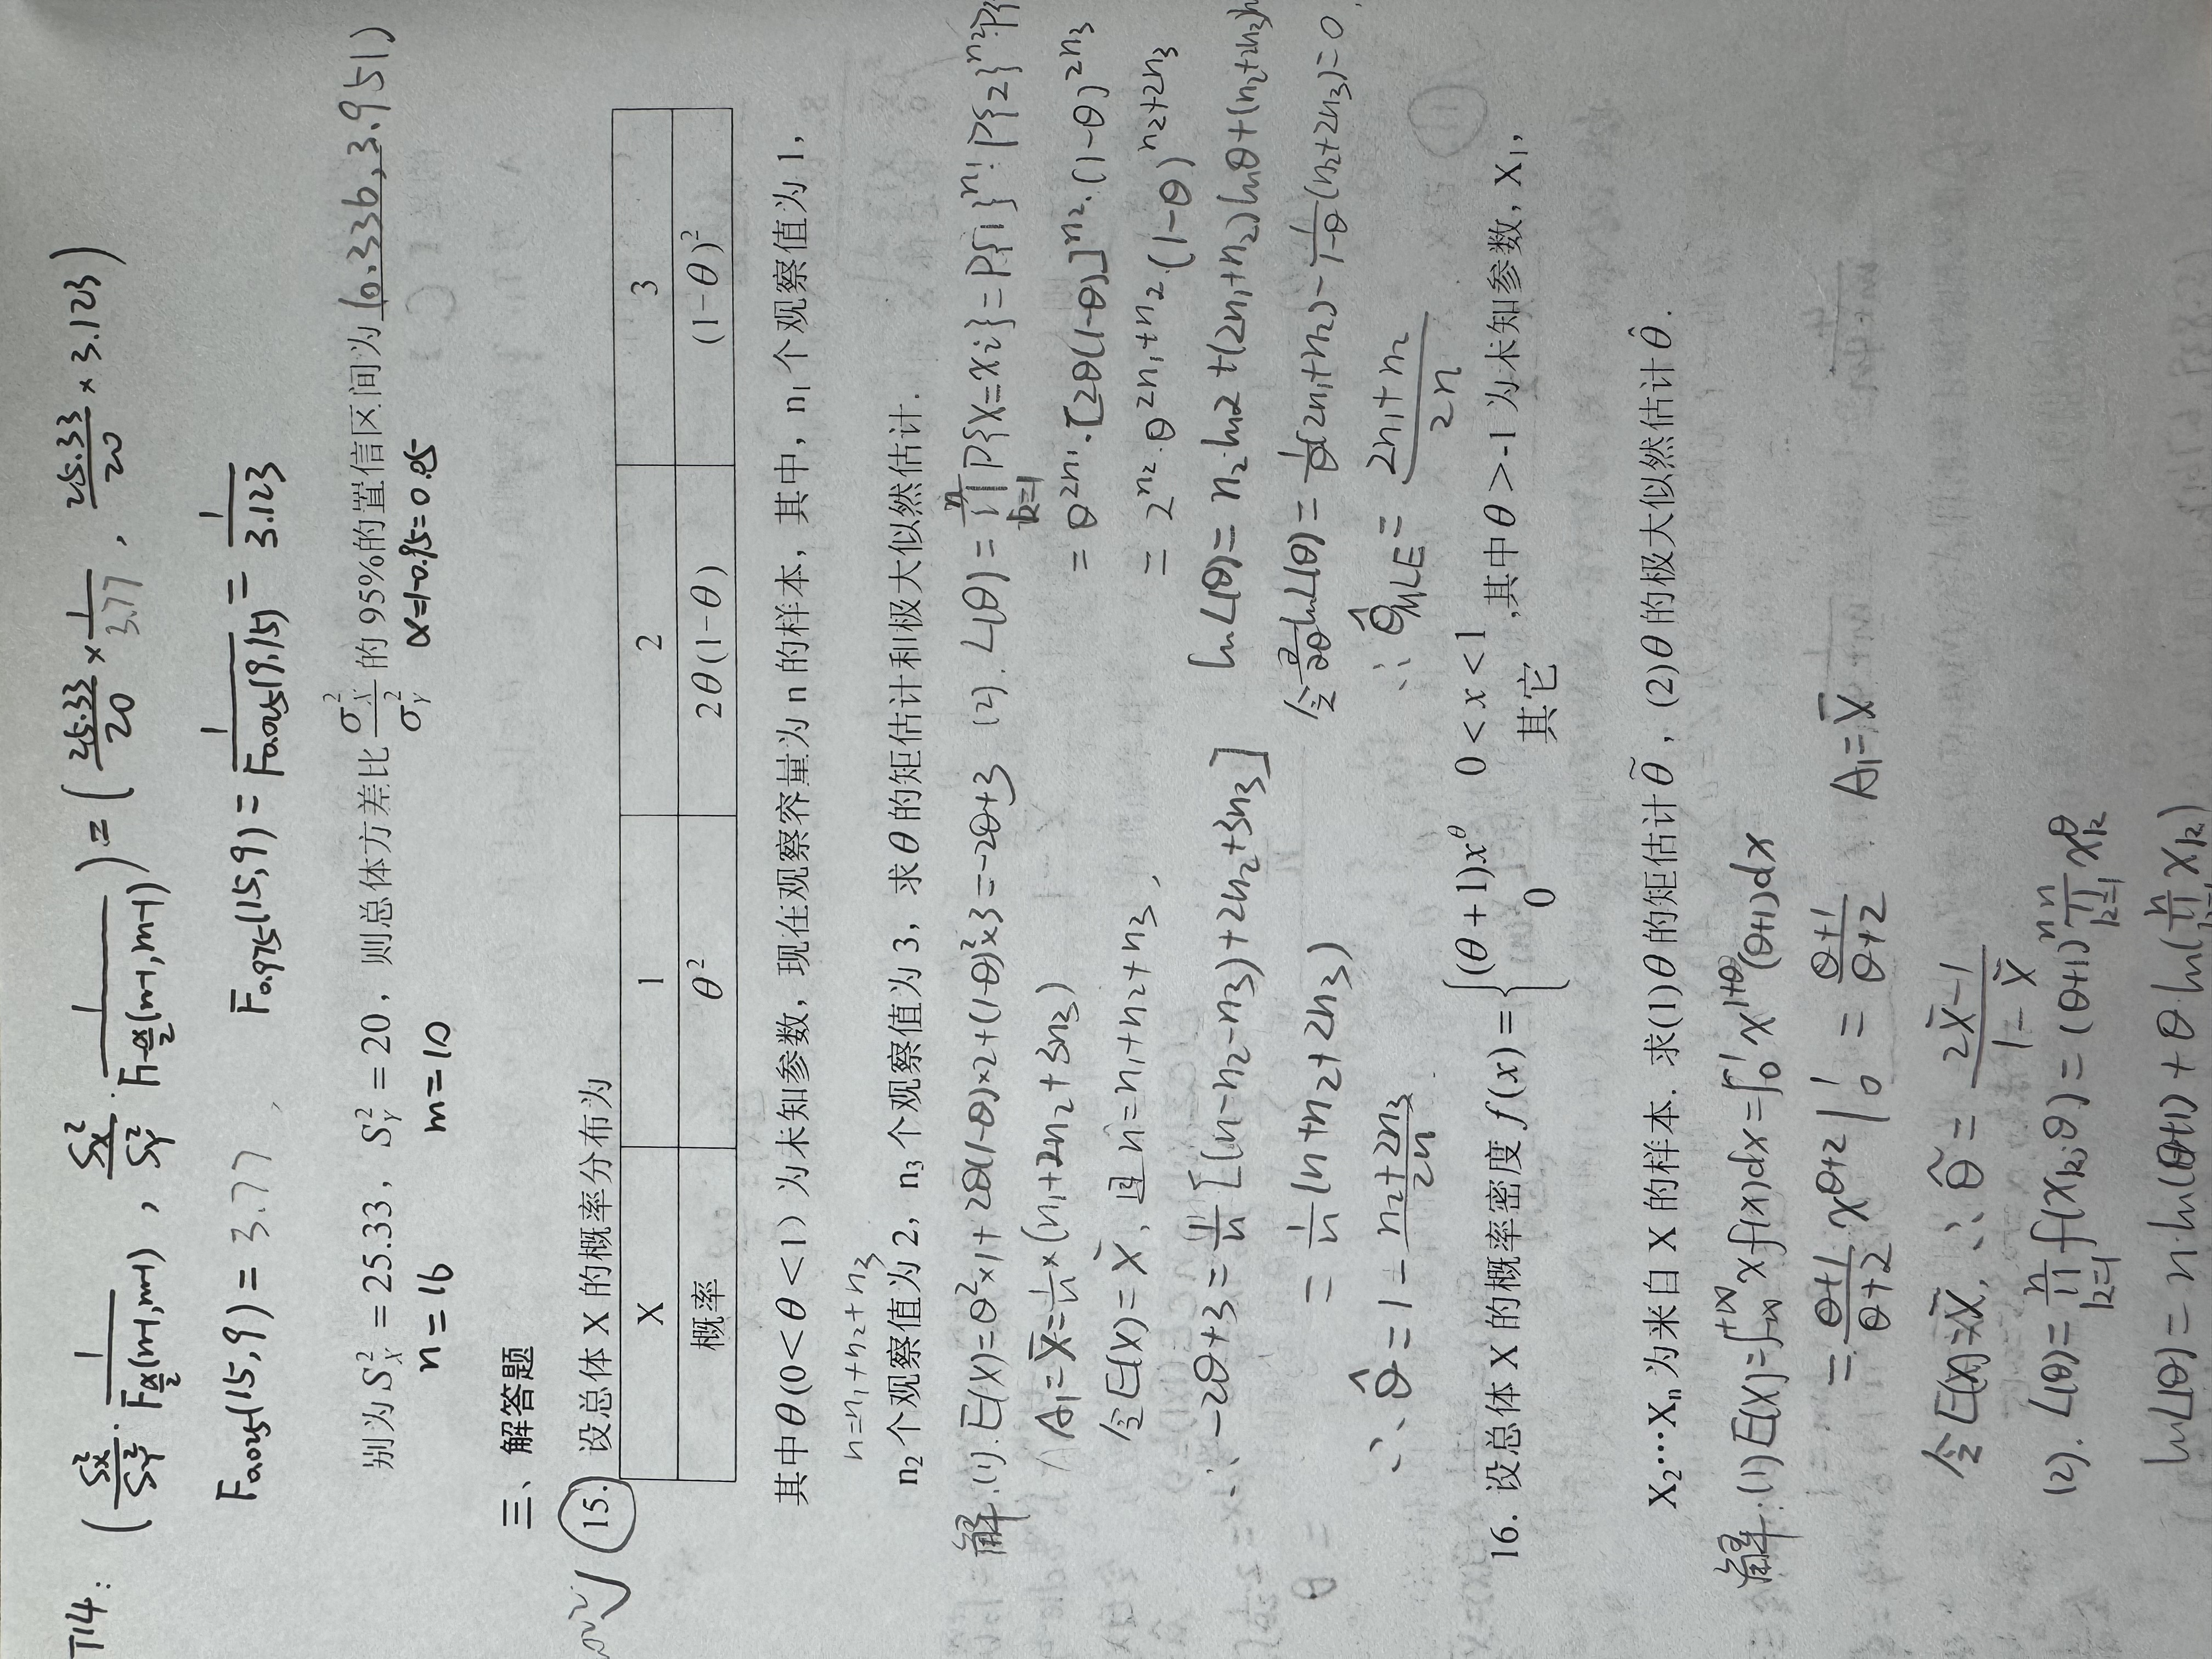 T14: (S_X^2/S_Y^2 · 1/F_{α/2}(n-1,m-1), S_X^2/S_Y^2 · 1/F_{1-α/2}(n-1,m-1)) = (25.33/20 × 1/3.77, 25.33/20 × 3.123)
F_{0.025}(15,9) = 3.77, F_{0.975}(15,9) = 1/F_{0.025}(9,15) = 1/3.123
别为 S_X^2 = 25.33，S_Y^2 = 20，则总体方差比 σ_X^2/σ_Y^2 的 95%的置信区间为 (0.336, 3.951)
n=16 m=10 α=1-0.95=0.05
三、解答题
15. 设总体 X 的概率分布为
X 1 2 3
概率 θ^2 2θ(1-θ) (1-θ)^2
其中θ(0＜θ＜1）为未知参数，现在观察容量为 n 的样本，其中，n_1 个观察值为 1，
n=n_1+n_2+n_3
n_2 个观察值为 2，n_3 个观察值为 3，求θ的矩估计和极大似然估计.
解:(1). E(X)=θ^2×1+2θ(1-θ)×2+(1-θ)^2×3=-2θ+3
A_1=X̄=1/n×(n_1+2n_2+3n_3)
令E(X)=X̄, 且n=n_1+n_2+n_3,
∴ -2θ+3=1/n[(n-n_2-n_3)+2n_2+3n_3]
=1/n(n+n_2+2n_3)
∴ θ̂=1-(n_2+2n_3)/2n
(2). L(θ)=∏_{k=1}^{n}P{X=x_i}=P{1}^{n_1}·P{2}^{n_2}·P{
=θ^{2n_1}·[2θ(1-θ)]^{n_2}·(1-θ)^{2n_3}
=2^{n_2}·θ^{2n_1+n_2}·(1-θ)^{n_2+2n_3}
lnL(θ)=n_2·ln2+(2n_1+n_2)lnθ+(n_2+2n_3)l
令∂/∂θ lnL(θ)=1/θ(2n_1+n_2)-1/(1-θ)(n_2+2n_3)=0
∴ θ̂_{MLE}=(2n_1+n_2)/2n
16. 设总体 X 的概率密度 f(x)={(θ+1)x^θ 0<x<1; 0 其它 ,其中θ＞-1 为未知参数, X_1,
X_2…X_n 为来自 X 的样本. 求(1)θ的矩估计θ̃，(2)θ的极大似然估计θ̂.
解:(1) E(X)=∫_{-∞}^{+∞}xf(x)dx=∫_0^1 x^{1+θ}(θ+1)dx
=(θ+1)/(θ+2) x^{θ+2}|_0^1=(θ+1)/(θ+2). A_1=X̄
令E(X)=X̄, ∴ θ̂=(2X̄-1)/(1-X̄)
(2). L(θ)=∏_{k=1}^{n}f(x_k;θ)=(θ+1)^n∏_{k=1}^{n}x_k^θ
lnL(θ)=n·ln(θ+1)+θ·ln(∏_{k=1}^{n}x_k)